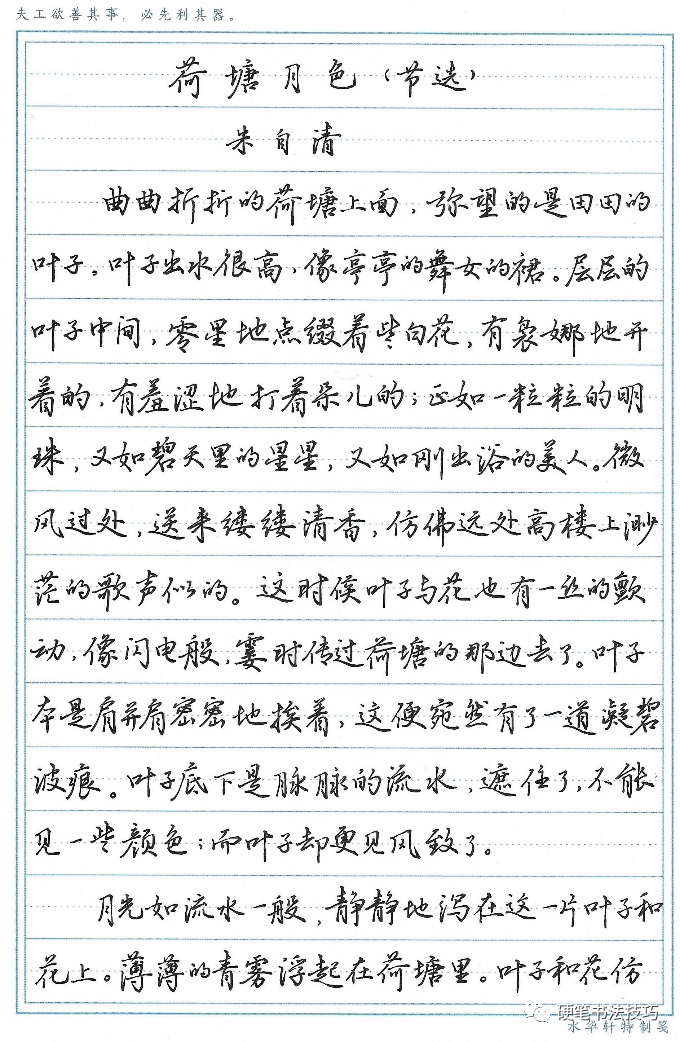 夫工欲善其事，必先利其器。
荷塘月色（节选）
朱自清
曲曲折折的荷塘上面，弥望的是田田的
叶子。叶子出水很高，像亭亭的舞女的裙。层层的
叶子中间，零星地点缀着些白花，有袅娜地开
着的，有羞涩地打着朵儿的；正如一粒粒的明
珠，又如碧天里的星星，又如刚出浴的美人。微
风过处，送来缕缕清香，仿佛远处高楼上渺
茫的歌声似的。这时候叶子与花也有一丝的颤
动，像闪电般，霎时传过荷塘的那边去了。叶子
本是肩并肩密密地挨着，这便宛然有了一道凝碧
波痕。叶子底下是脉脉的流水，遮住了，不能
见一些颜色；而叶子却更见风致了。
月光如流水一般，静静地泻在这一片叶子和
花上。薄薄的青雾浮起在荷塘里。叶子和花仿
硬笔书法技巧
水华轩特制笺